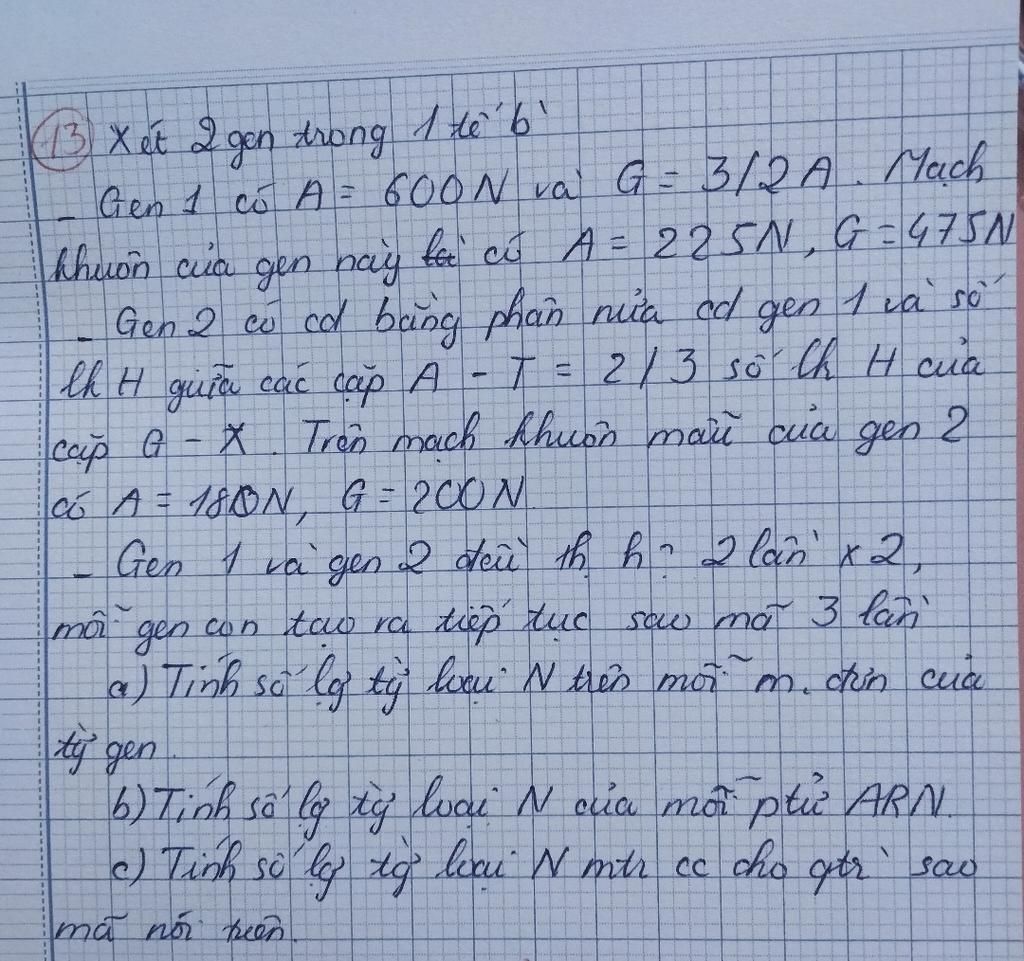 13 Xét 2 gen trong 1 tế b'
- Gen 1 có A = 600N và G = 3/2A. Mạch
khuôn của gen này có A = 225N, G = 475N
- Gen 2 có cd bằng phân nửa cd gen 1 và số
lk H giữa các cặp A - T = 2/3 số lk H của
cặp G - X. Trên mạch khuôn mẫu của gen 2
có A = 180N, G = 200N
- Gen 1 và gen 2 đều 2 lần x 2,
mỗi gen con tạo ra tiếp tục sao mã 3 lần
a) Tính số lg từ loại N trên mỗi m. đơn của
từ gen.
b) Tính số lg từ loại N của mỗi ptử ARN.
c) Tính số lg từ loại N mtr cc cho qtr sao
mã nói trên.